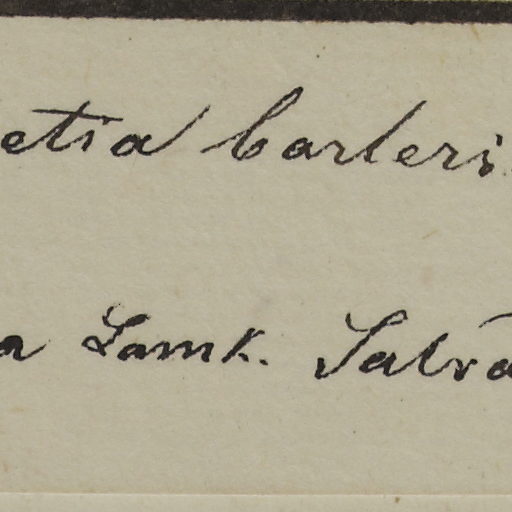 etia carleri
a Lamk. Salva